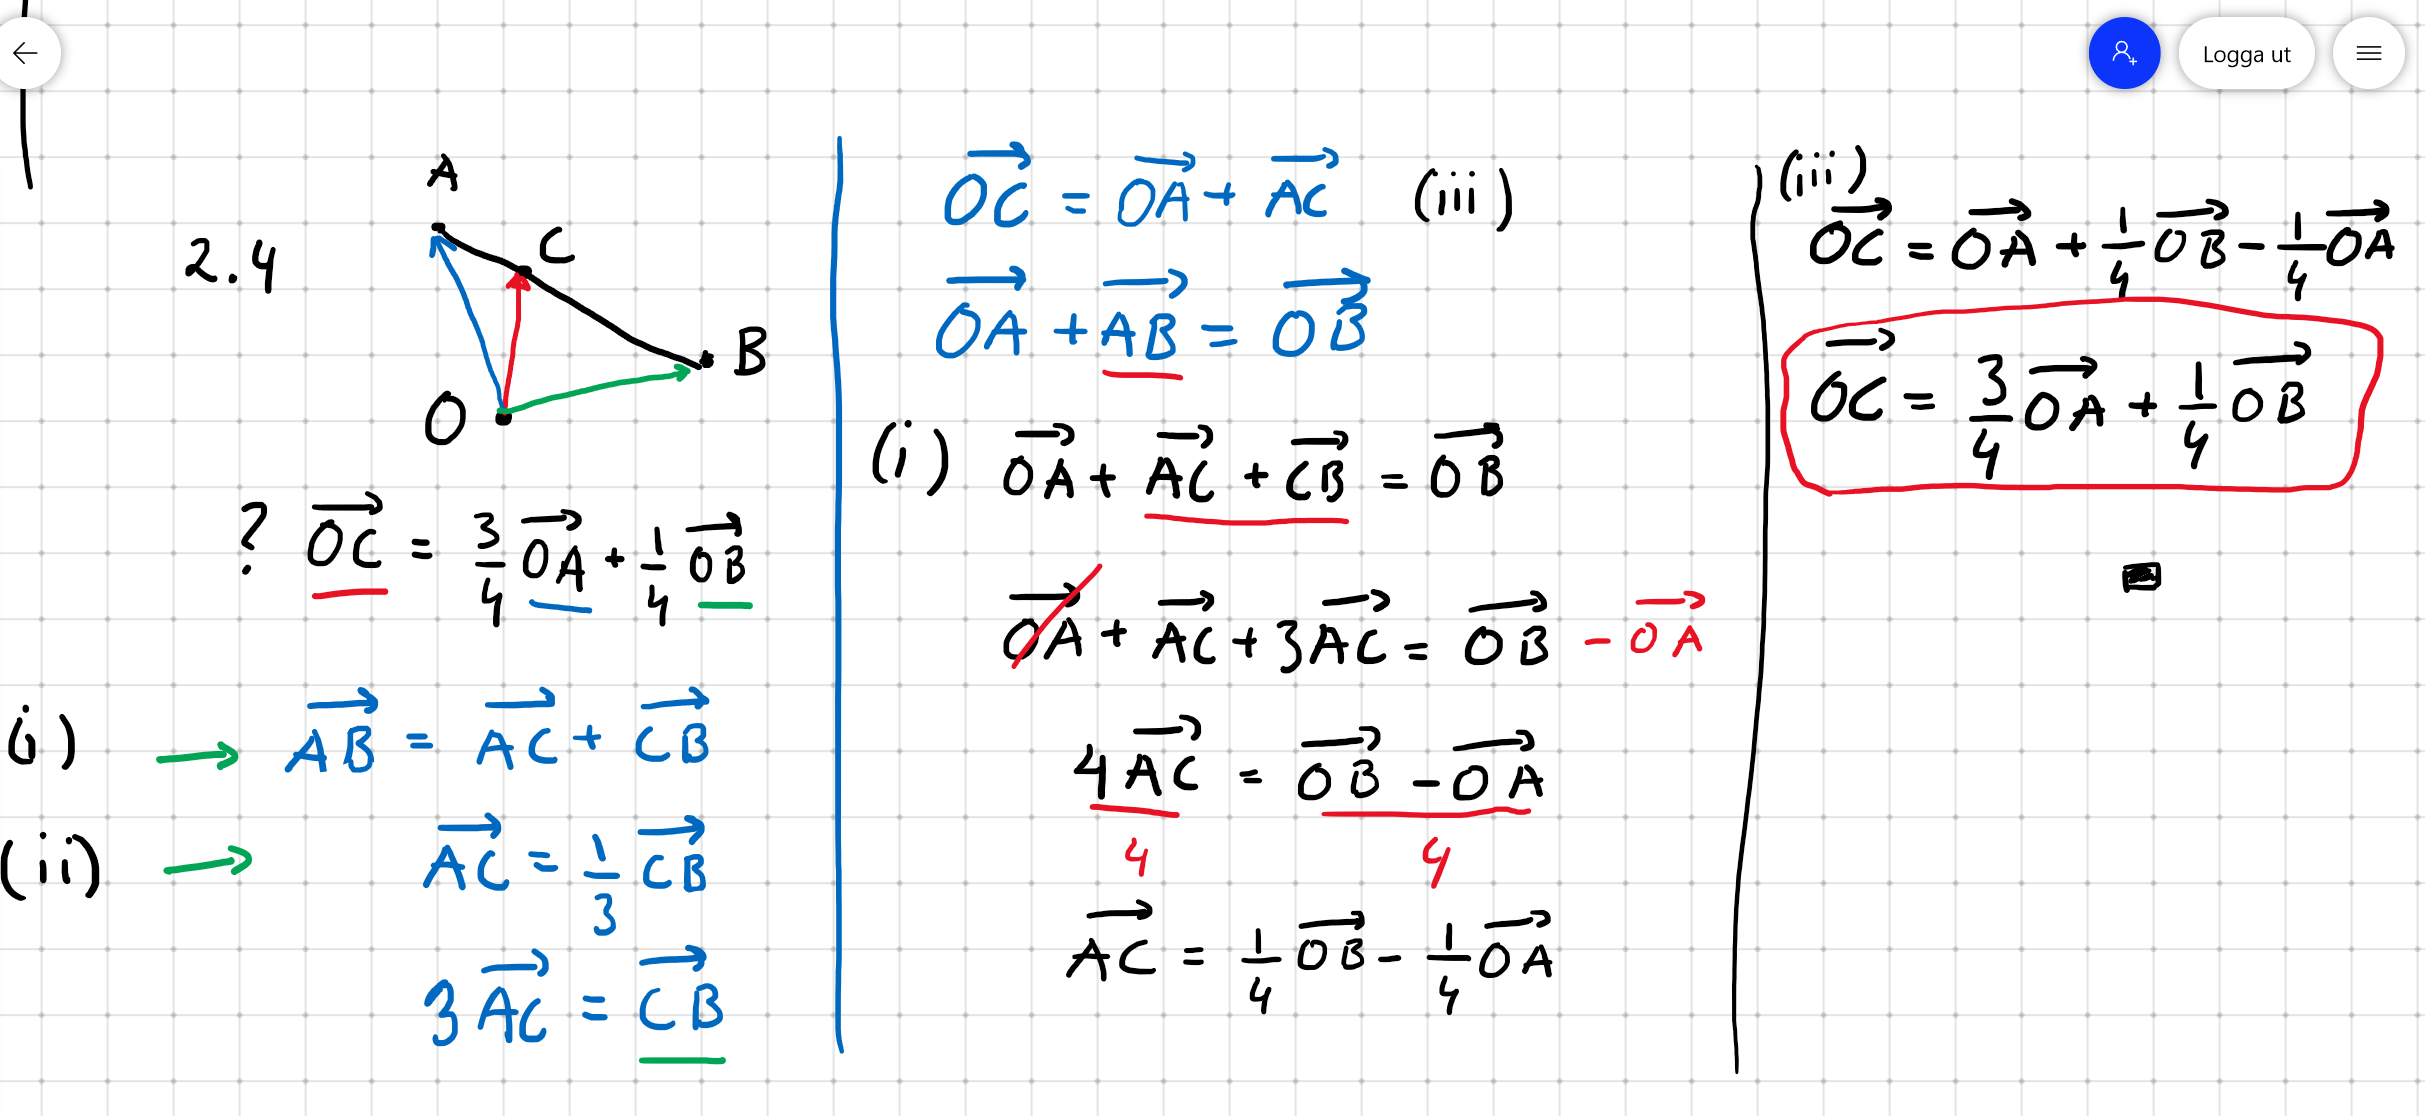 Logga ut
2.4
A
C
B
O
? OC = 3/4 OA + 1/4 OB
(i) → AB = AC + CB
(ii) → AC = 1/3 CB
3AC = CB
OC = OA + AC (iii)
OA + AB = OB
(i) OA + AC + CB = OB
OA + AC + 3AC = OB - OA
4AC = OB - OA
4 4
AC = 1/4 OB - 1/4 OA
(iii)
OC = OA + 1/4 OB - 1/4 OA
OC = 3/4 OA + 1/4 OB